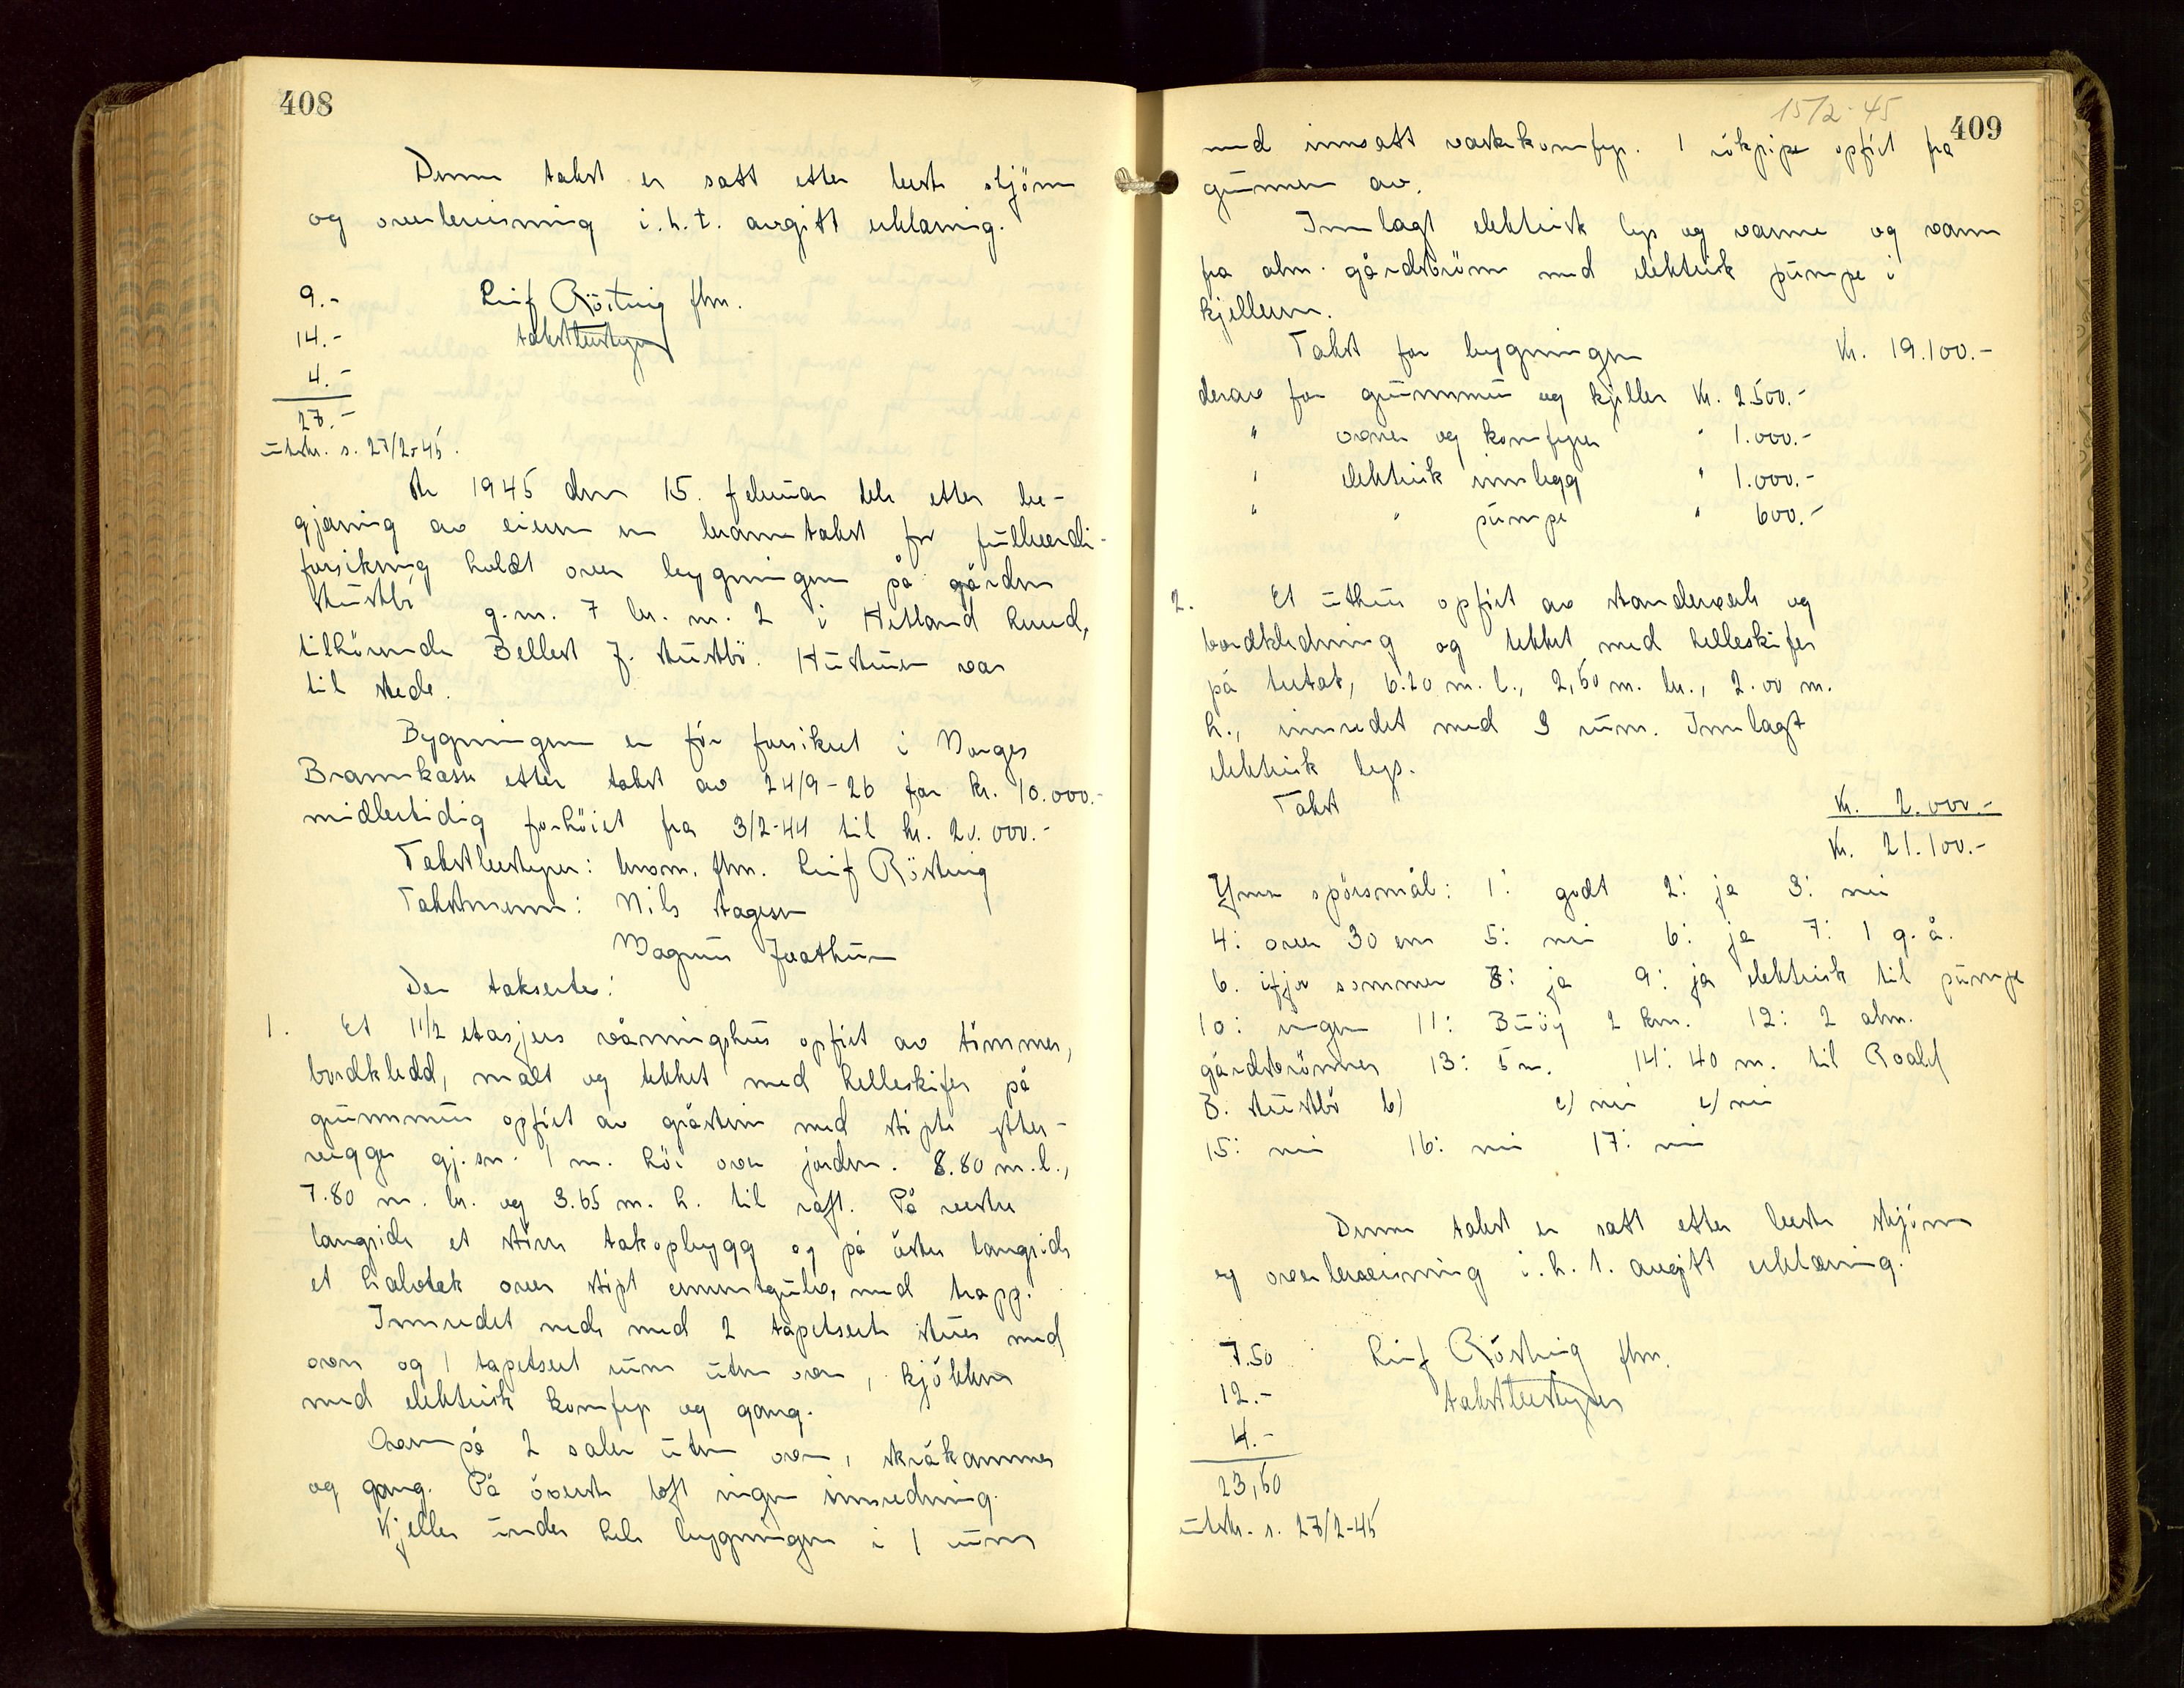 408
Denne takst er satt etter beste skjönn
og overbevisning i.h.t. avgitt erklæring.
9.-
Leif Röstvig fhm.
14.-
takstbestyrer
4.-
27.-
utskr. s. 27/2-45.
År 1945 den 15. februar ble etter be-
gjæring av eieren en branntakst for fullverdi-
forsikring holdt over bygningen på gården
Austbö g.nr. 7 br.nr. 2 i Hetland herred,
tilhörende Bellest J. Austbö. Hustruen var
til stede.
Bygningen er för forsikret i Norges
Brannkasse etter takst av 24/9-26 for kr. 10.000.-
midlertidig forhöiet fra 3/2-44 til kr. 20.000.-
Takstbestyrer: konst. fhm. Leif Röstvig
Takstmenn: Nils Aagesen
Magnus Joathun
Den takserte:
1. Et 1 1/2 etasjers våningshus opfört av tömmer,
bordkledd, malt og tekket med helleskifer på
grunnmur opfört av gråstein med stöpte ytter-
vegger gj.sn. 1 m. höi over jorden. 8.80 m.l.,
7.80 m. br. og 3.65 m. h. til raft. På vestre
langside et större takopbygg og på östre langside
et halvtak over stöpt cementgulv, med trapp.
Innredet nede med 2 tapetserte stuer med
ovn og 1 tapetsert rum uten ovn, kjökken
med elektrisk komfyr og gang.
Ovenpå 2 saler uten ovn, skråkammer
og gang. På överste loft ingen innredning.
Kjeller under hele bygningen i 1 rum
15/2-45
409
med innsatt vaskekomfyr. 1 rökpipe opfört fra
grunnen av.
Innlagt elektrisk lys og varme og vann
fra alm. gårdsbrönn med elektrisk pumpe i
kjelleren.
Takst for bygningen Kr. 19.100.-
derav for grunnmur og kjeller Kr. 2.500.-
" ovner og komfyrer " 1.000.-
" elektrisk innlegg " 1.000.-
" " pumpe " 600.-
2. Et uthus opfört av standerverk og
bordkledning og tekket med helleskifer
på tretak, 6.20 m.l., 2,50 m. br., 2.00 m.
h., innredet med 3 rum. Innlagt
elektrisk lys.
Takst Kr. 2.000.-
Kr. 21.100.-
Ymse spörsmål: 1: godt 2: ja 3: nei
4: over 30 cm 5: nei 6: ja 7: 1 g. å.
6. ifjor sommer 8: ja 9: ja elektrisk til pumpe
10: ingen 11: Buöy 2 km. 12: 2 alm.
gårdsbrönner 13: 5 m. 14: 40 m. til Roald
B. Austbö b) c) nei e) nei
15: nei 16: nei 17: nei
Denne takst er satt etter beste skjönn
og overbevisning i.h.t. avgitt erklæring.
7.50
Leif Röstvig fhm.
12.-
takstbestyrer
4.-
23,50
utskr. s. 27/2-45